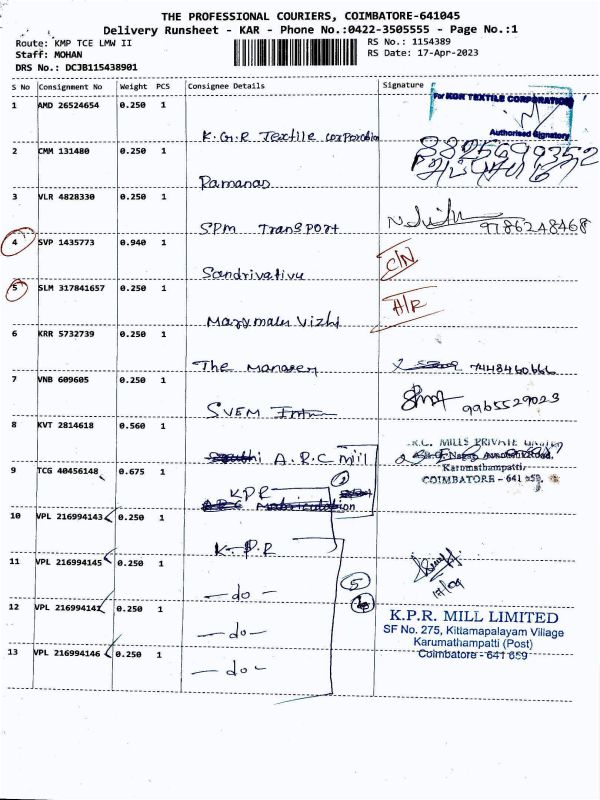 THE PROFESSIONAL COURIERS, COIMBATORE-641045
Delivery Runsheet - KAR - Phone No.:0422-3505555 - Page No.:1
Route: KMP TCE LMW II
RS No.: 1154389
Staff: MOHAN
RS Date: 17-Apr-2023
DRS No.: DCJB115438901
S No Consignment No Weight PCS Consignee Details Signature
For KGR TEXTILE CORPORATION
1 AMD 26524654 0.250 1
Authorised Signatory
K.G.R Textile corporation
8825699352
2 CMM 131480 0.250 1
Ramanas
3 VLR 4828330 0.250 1
SPM Transport
9786248468
4 SVP 1435773 0.940 1
C/N
5 SLM 317841657 0.250 1
H/R
6 KRR 5732739 0.250 1
The Manager
7448460666
7 VNB 609605 0.250 1
9965529023
SVEM
8 KVT 2814618 0.560 1
A.R.C Mill
R.C. MILLS PRIVATE LIMITED
Karumathampatti,
COIMBATORE - 641 659.
9 TCG 40456148 0.675 1
KPR
10 VPL 216994143 0.250 1
K.P.R
11 VPL 216994145 0.250 1
17/04
- do -
5
12 VPL 216994142 0.250 1
- do -
K.P.R. MILL LIMITED
SF No. 275, Kittamapalayam Village
Karumathampatti (Post)
Coimbatore - 641 659
13 VPL 216994146 0.250 1
- do -